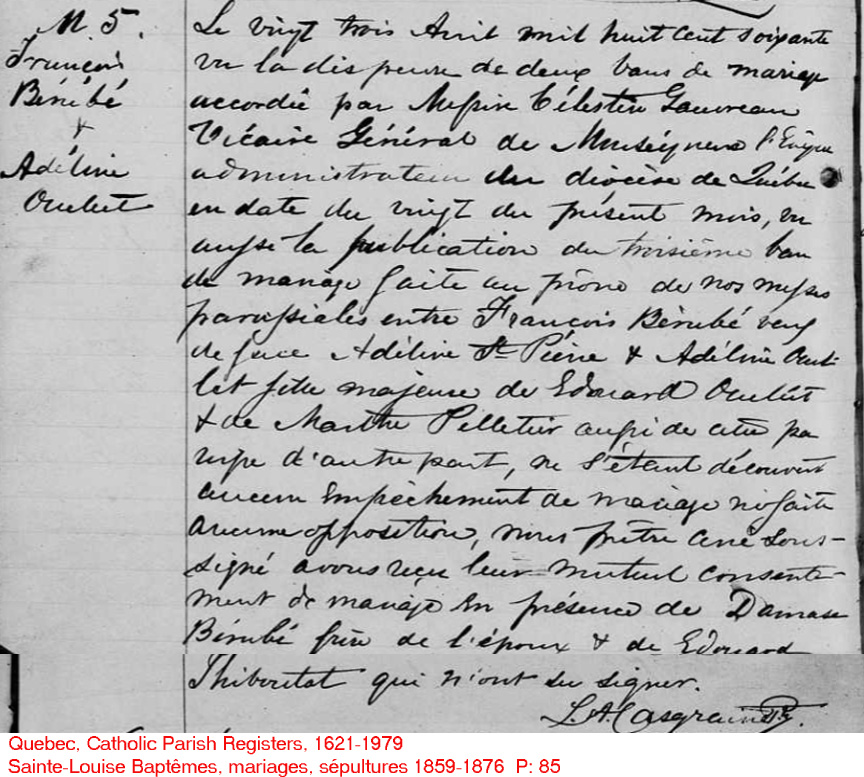 M. 5.
François
Bérubé
&
Adéline
Ouelet
Le vingt trois Avril mil huit cent soixante
vu la dispense de deux bans de mariage
accordée par Messire Célestin Gauvreau
Vicaire Général de Monseigneur l'Evêque
administrateur du diocèse de Québec
en date du vingt du présent mois, vu
aussi la publication du troisième ban
de mariage faite au prône de nos messes
paroissiales entre François Bérubé veuf
de feue Adéline St Pierre & Adéline Oue-
let fille majeure de Edouard Ouelet
& de Marthe Pelletier aussi de cette pa
roisse d'autre part, ne s'étant découvert
aucun empêchement de mariage ni faite
aucune opposition, nous prêtre curé sous-
signé avons reçu leur mutuel consente-
ment de mariage en présence de Damase
Bérubé frère de l'époux & de Edouard
Thiboutot qui n'ont su signer.
L.A. Casgrain Ptr.
Quebec, Catholic Parish Registers, 1621-1979
Sainte-Louise Baptêmes, mariages, sépultures 1859-1876 P: 85